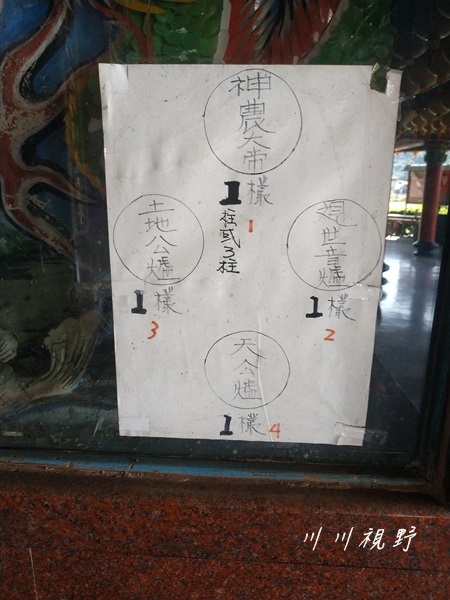 神農大帝
1樣
1
柱或3柱
土地公爐
1樣
3
觀世音爐
1樣
2
天公爐
1樣
4
川川視野